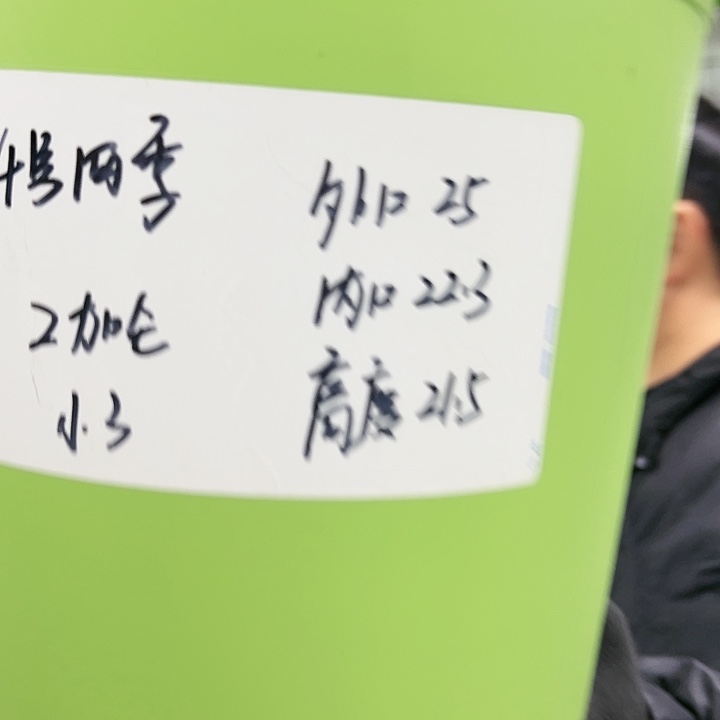 号四季
2加仑
外口 25
内口 22.3
高度 21.5